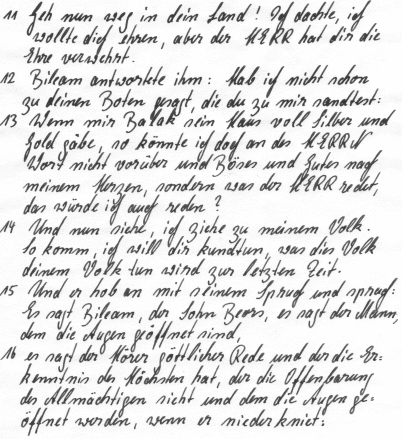 11 Geh nun weg in dein Land! Ich dachte, ich
wollte dich ehren, aber der HERR hat dir die
Ehre verwehrt.
12 Bileam antwortete ihm: Hab ich nicht schon
zu deinen Boten gesagt, die du zu mir sandtest:
13 Wenn mir Balak sein Haus voll Silber und
Gold gäbe, so könnte ich doch an des HERRN
Wort nicht vorüber und Böses und Gutes nach
meinem Herzen, sondern was der HERR redet,
das würde ich auch reden?
14 Und nun siehe, ich ziehe zu meinem Volk.
So komm, ich will dir kundtun, was dies Volk
deinem Volk tun wird zur letzten Zeit.
15 Und er hob an mit seinem Spruch und sprach:
Es sagt Bileam, der Sohn Beors, es sagt der Mann,
dem die Augen geöffnet sind,
16 es sagt der Hörer göttlicher Rede und der die Er=
kenntnis des Höchsten hat, der die Offenbarung
des Allmächtigen sieht und dem die Augen ge=
öffnet werden, wenn er niederkniet: